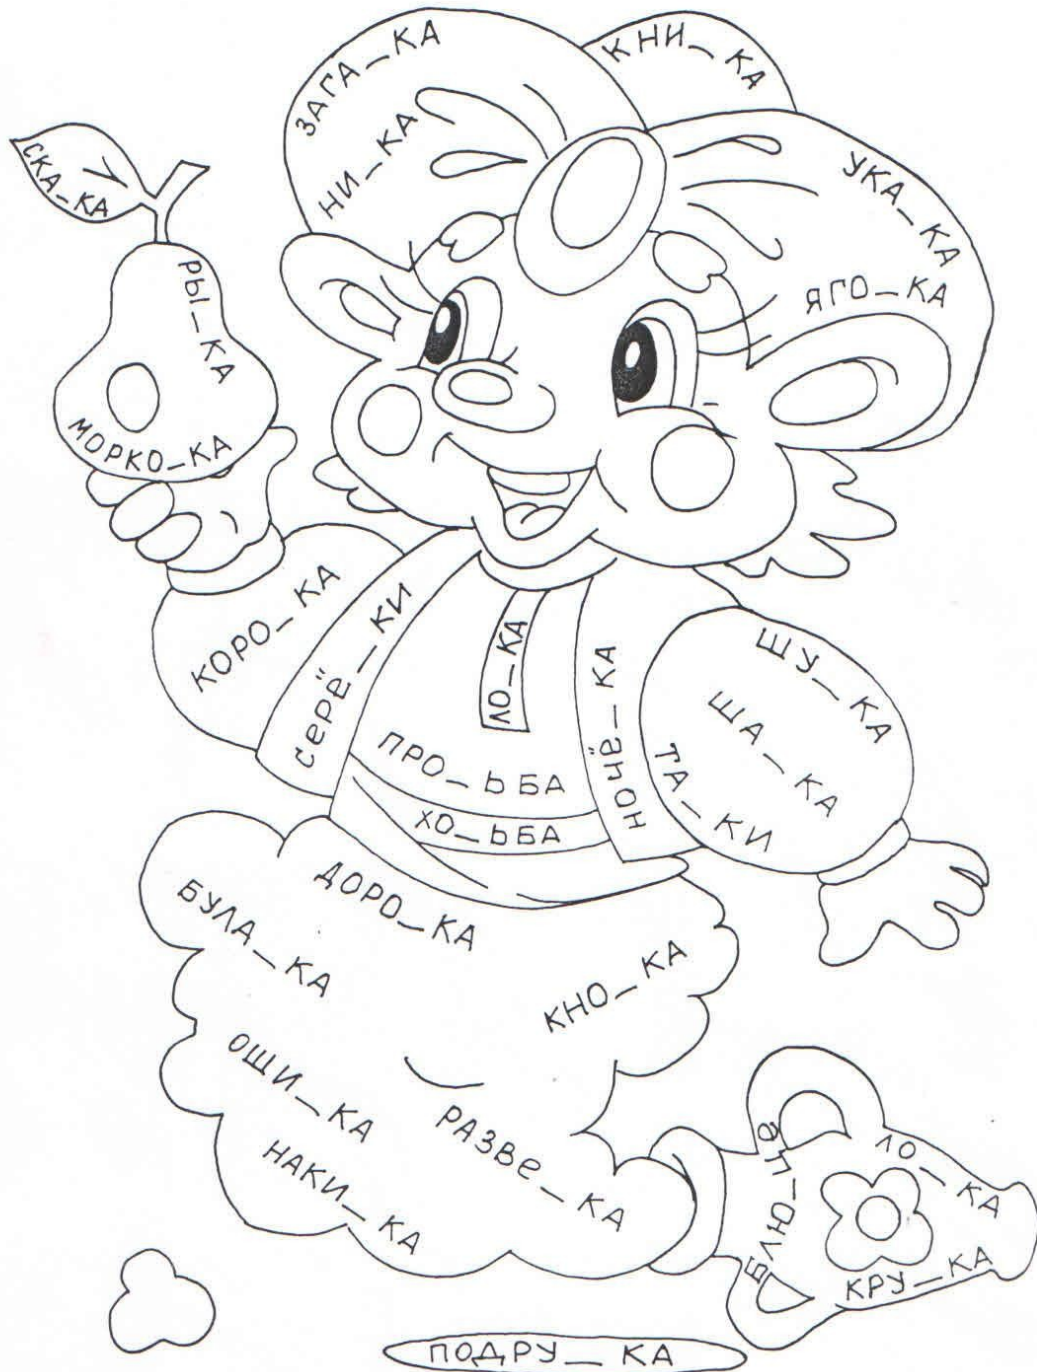 ЗАГА_КА
КНИ_КА
НИ_КА
СКА_КА
УКА_КА
ЯГО_КА
РЫ_КА
МОРКО_КА
КОРО_КА
серё_ки
ЛО_КА
НОЧё_КА
ШУ_КА
ША_КА
ТА_КИ
ПРО_ЬБА
ХО_ЬБА
ДОРО_КА
БУЛА_КА
КНО_КА
ОШИ_КА
РАЗВе_КА
НАКИ_КА
ЛО_КА
КРУ_КА
ПОДРУ_КА